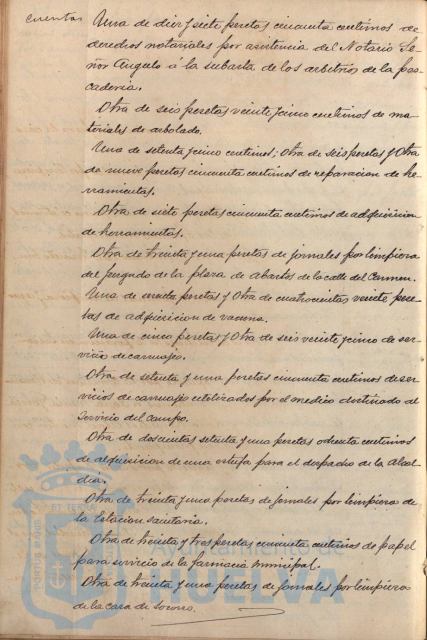 cuentas Una de diez y siete pesetas cincuenta centimos de
derechos notariales por asistencia del Notario Se-
ñor Angulo á la subasta de los arbitrios de la pes-
cadería.
Otra de seis pesetas veinte y cinco centimos de ma-
teriales de arbolado.
Una de setenta y cinco centimos; otra de seis pesetas y otra
de nueve pesetas cincuenta centimos de reparacion de he-
rramientas.
Otra de siete pesetas cincuenta centimos de adquisicion
de herramientas.
Otra de treinta y una pesetas de jornales por limpieza
del Juzgado de la plaza de abastos de la calle del Carmen.
Una de pesetas y otra de cuatrocientas veinte pese-
tas de adquisicion de vacuna.
Una de cinco pesetas y otra de seis veinte y cinco de ser-
vicio de carruajes.
Otra de setenta y una pesetas cincuenta centimos de ser-
vicios de carruajes utilizados por el medico destinado al
servicio del campo.
Otra de doscientas setenta y una pesetas ochenta centimos
de adquisicion de una estufa para el despacho de la Alcal-
dia.
Otra de treinta y una pesetas de jornales por limpieza de
la Estacion sanitaria.
Otra de treinta y tres pesetas cincuenta centimos de papel
para servicio de la farmacia municipal.
Otra de treinta y una pesetas de jornales por limpieza
de la casa de socorro.
Ayuntamiento de
HUELVA